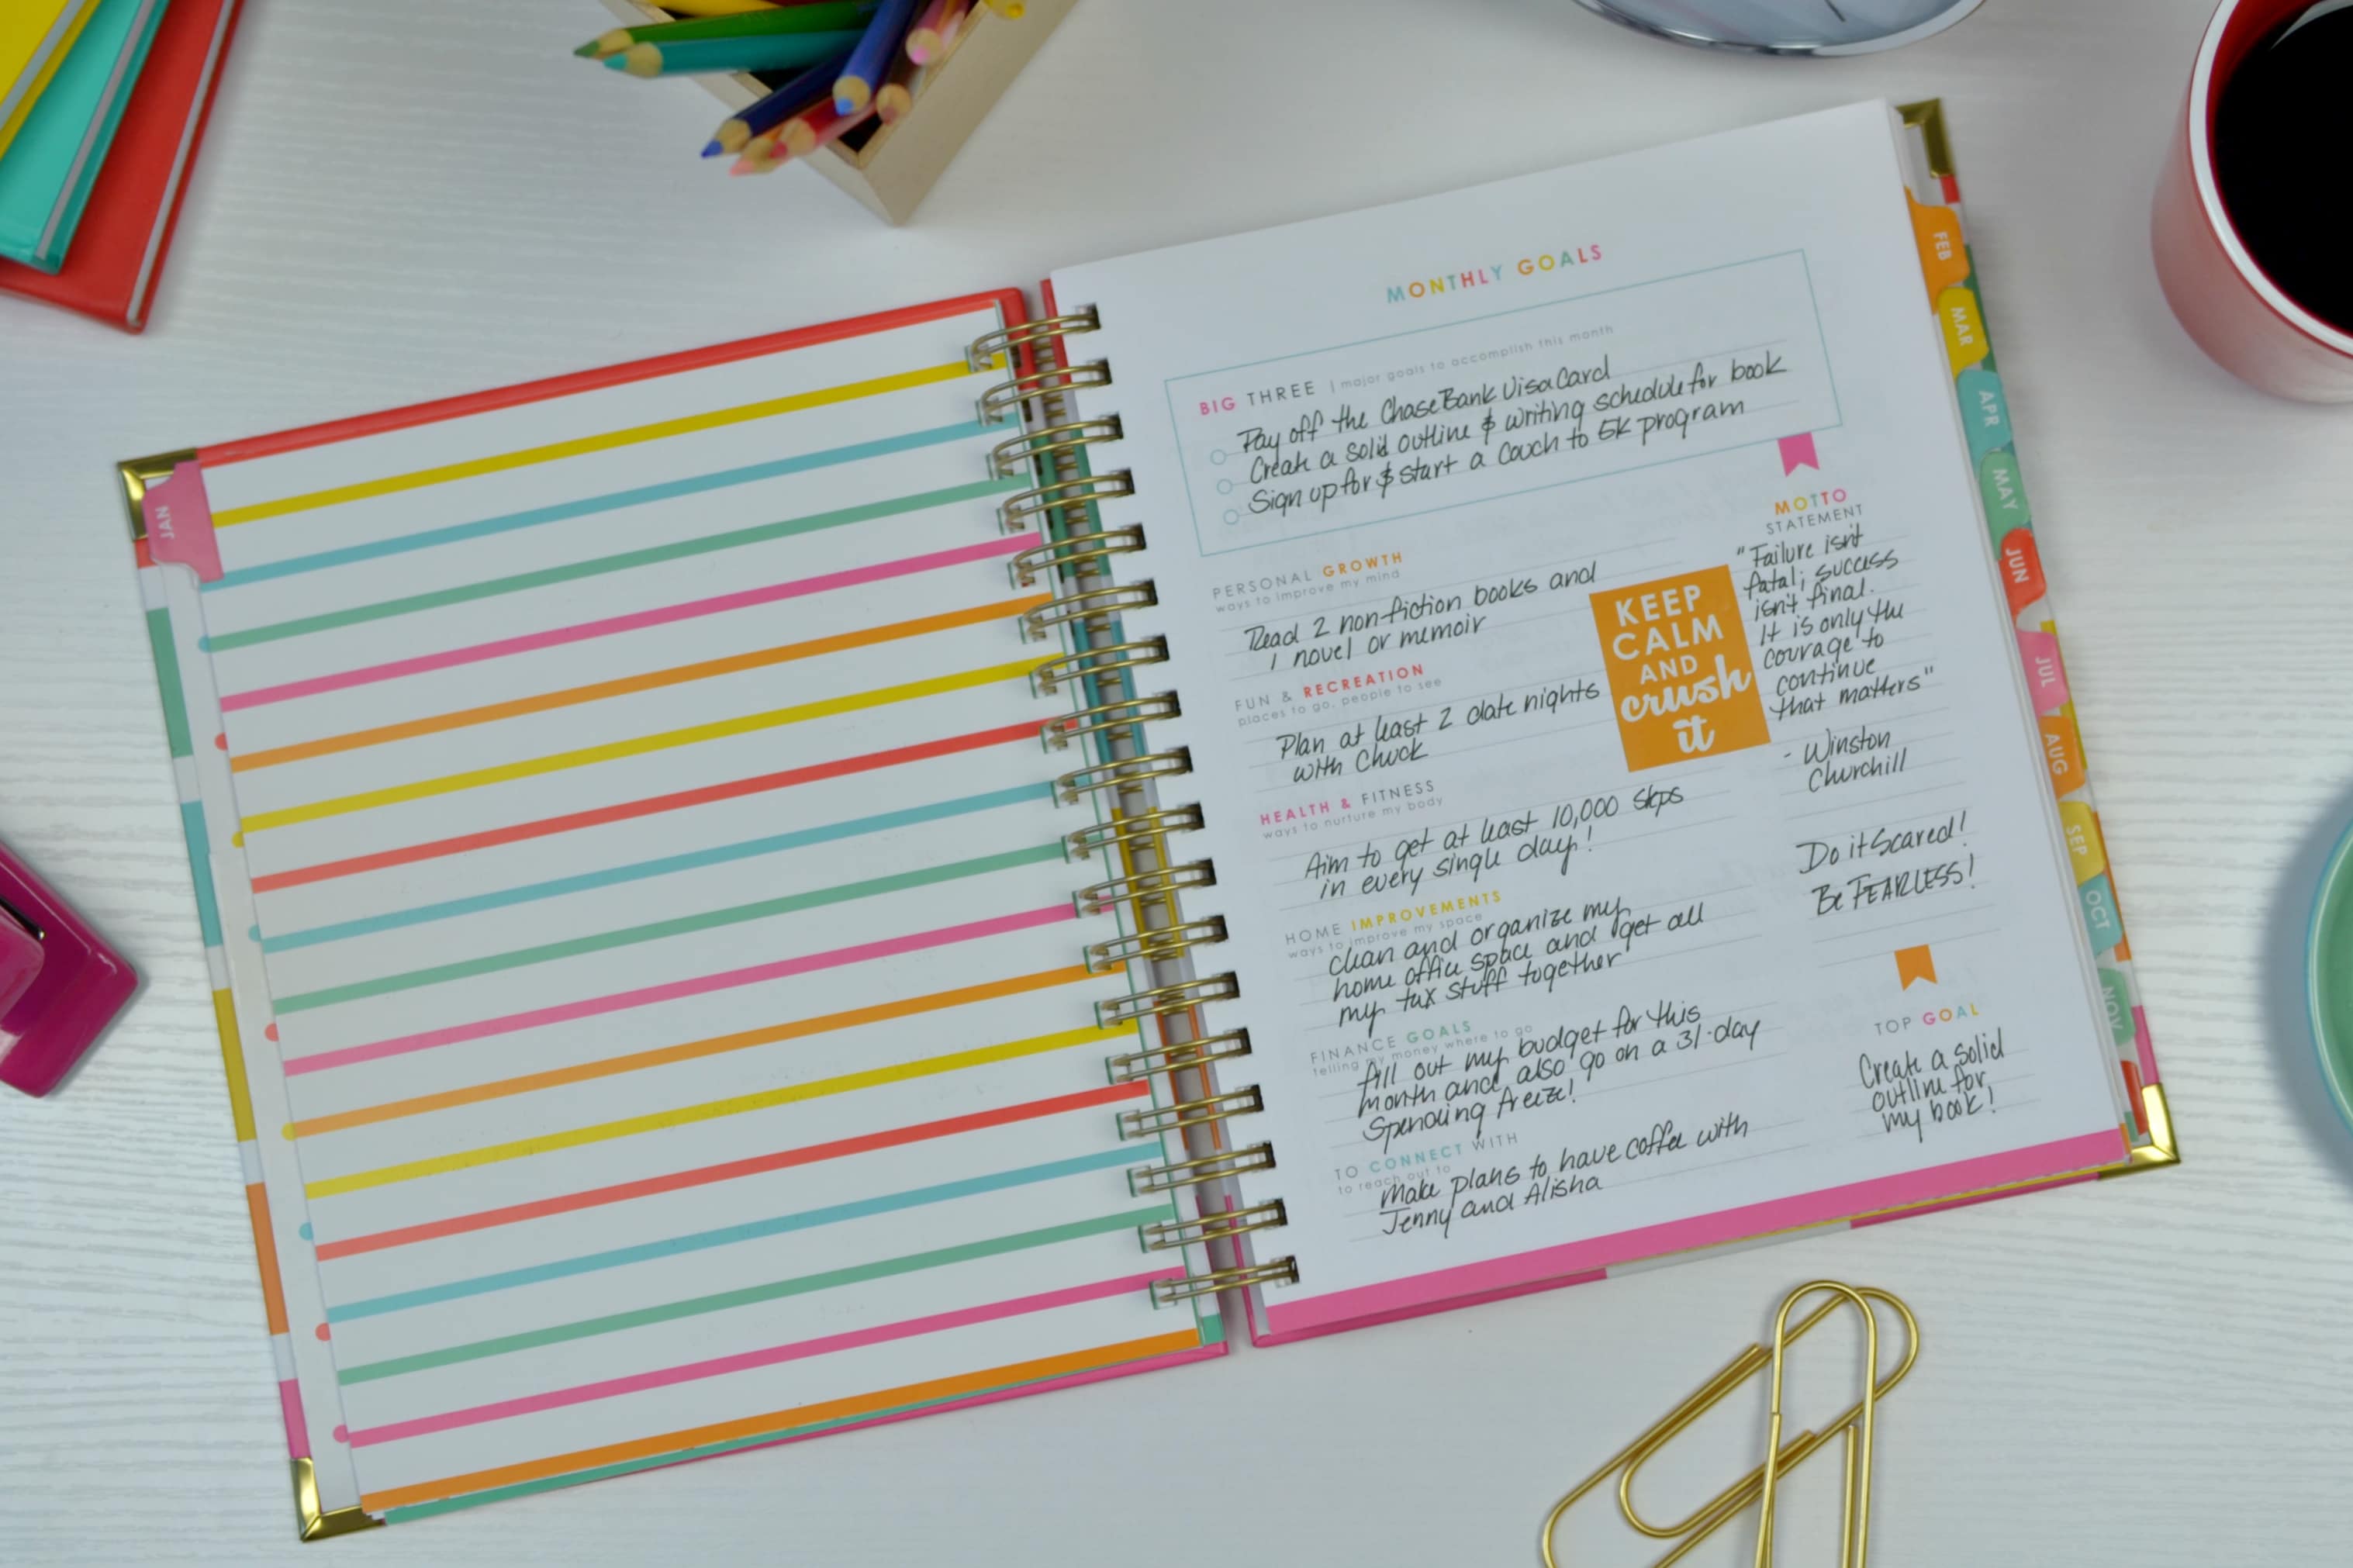 JAN
MONTHLY GOALS
BIG THREE | major goals to accomplish this month
Pay off the Chase Bank Visa Card
Create a solid outline & writing schedule for book
Sign up for & start a Couch to 5K program
PERSONAL GROWTH
ways to improve my mind
Read 2 non-fiction books and
1 novel or memoir
FUN & RECREATION
places to go, people to see
Plan at least 2 date nights
with Chuck
HEALTH & FITNESS
ways to nurture my body
Aim to get at least 10,000 steps
in every single day!
HOME IMPROVEMENTS
ways to improve my space
clean and organize my
home office space and get all
my tax stuff together
FINANCE GOALS
telling my money where to go
fill out my budget for this
month and also go on a 31-day
Spending freeze!
TO CONNECT WITH
to reach out to
Make plans to have coffee with
Jenny and Alisha
KEEP
CALM
AND
crush
it
MOTTO
STATEMENT
"Failure isn't
fatal; success
isn't final.
It is only the
courage to
continue
that matters"
- Winston
Churchill
Do it Scared!
Be FEARLESS!
TOP GOAL
Create a solid
outline for
my book!
FEB
MAR
APR
MAY
JUN
JUL
AUG
SEP
OCT
NOV